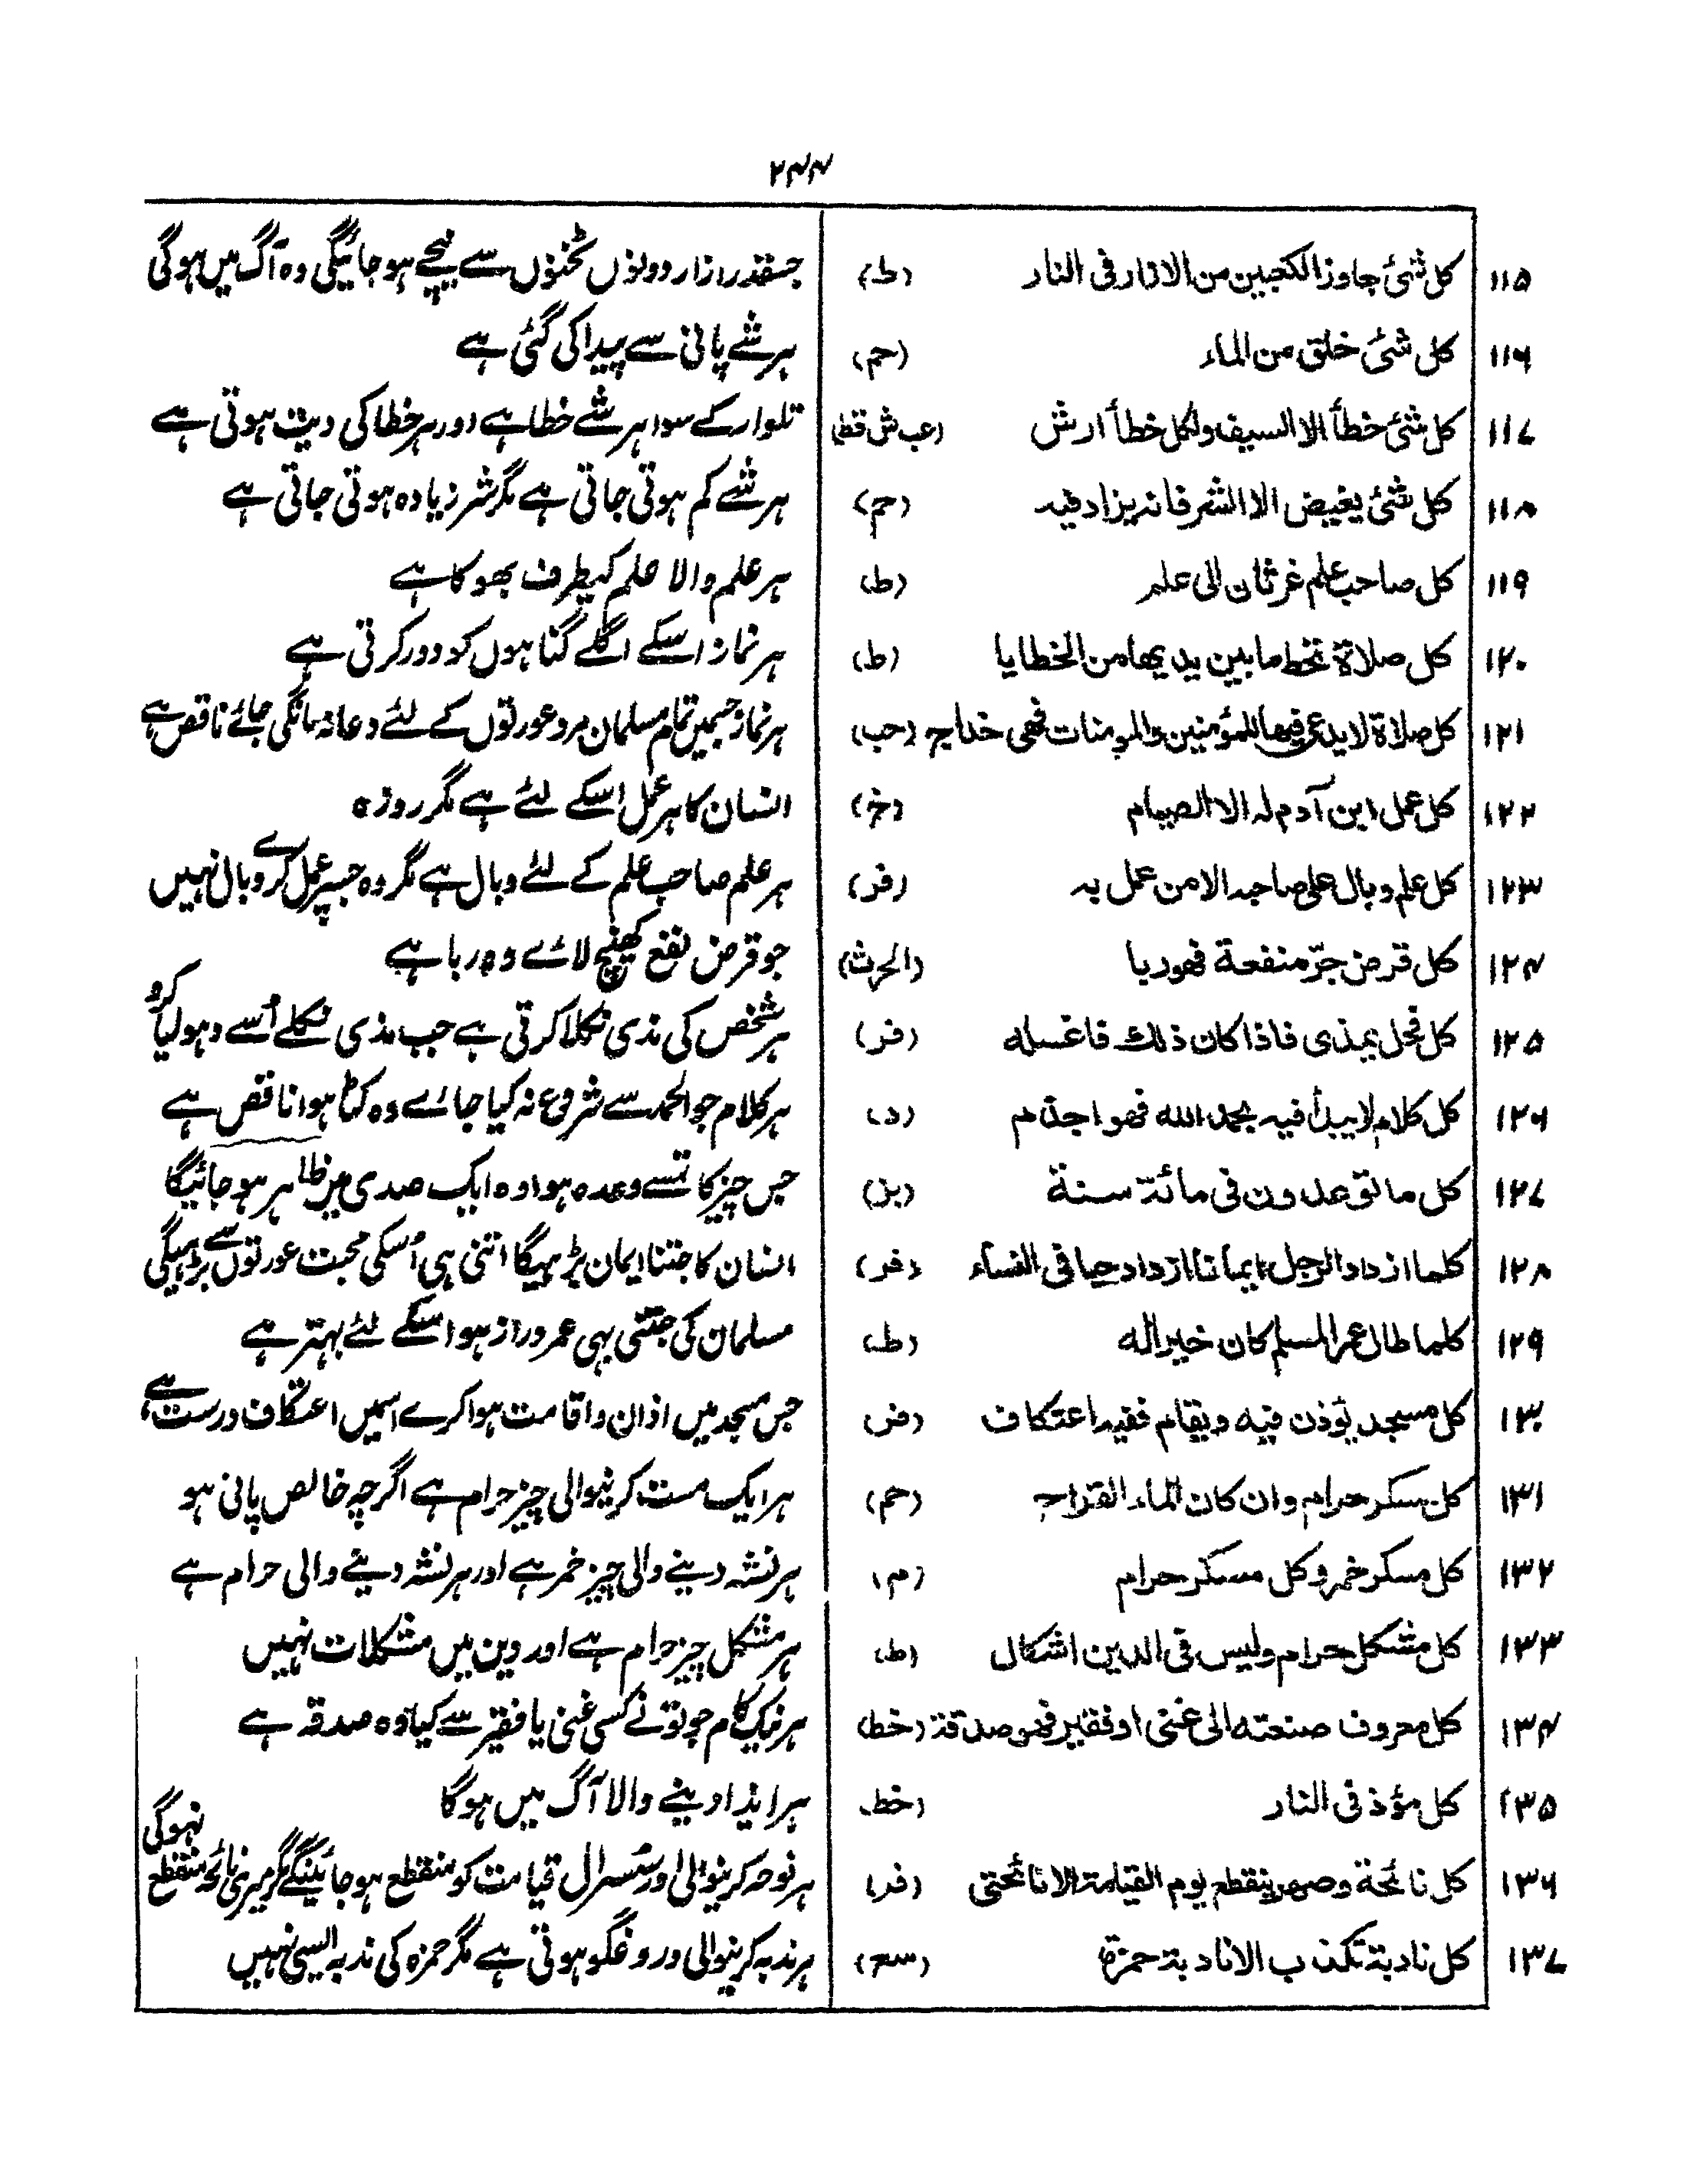 ۲۴۴
۱۱۵ کل شئ جاوز الکعبین من الازار فی النار (ط) جسقدر ازار دونوں ٹخنوں سے نیچے ہو جائیگی وہ آگ میں ہوگی
۱۱۶ کل شئ خلق من الماء (حم) ہر شے پانی سے پیدا کی گئی ہے
۱۱۷ کل شئ خطأ الا السیف ولکل خطأ ارش (عب ش قط) تلوار کے سوا ہر شے خطا ہے اور ہر خطا کی دیت ہوتی ہے
۱۱۸ کل شئ یغیض الا الشر فانہ یزاد فیہ (حم) ہر شے کم ہوتی جاتی ہے مگر شر زیادہ ہوتی جاتی ہے
۱۱۹ کل صاحب علم غرثان الی علم (ط) ہر علم والا علم کیطرف بھوکا ہے
۱۲۰ کل صلاة تحط ما بین یدیها من الخطایا (ط) ہر نماز اسکے اگلے گناہوں کو دور کرتی ہے
۱۲۱ کل صلاة لا یدعی فیها للمؤمنین والمومنات فهی خداج (حب) ہر نماز جسمیں تمام مسلمان مرد عورتوں کے لئے دعا نہ مانگی جائے ناقص ہے
۱۲۲ کل عمل ابن آدم لہ الا الصیام (خ) انسان کا ہر عمل اسکے لئے ہے مگر روزہ
۱۲۳ کل علم وبال علی صاحبہ الا من عمل بہ (فر) ہر علم صاحب علم کے لئے وبال ہے مگر وہ جسپر عمل کرے وبال نہیں
۱۲۴ کل قرض جرّ منفعة فهو ربا (الحرث) جو قرض نفع کھینچ لائے وہ ربا ہے
۱۲۵ کل فحل یمذی فاذا کان ذلک فاغسله (فر) ہر شخص کی مذی نکلا کرتی ہے جب مذی نکلے اُسے دہو لیا کرو
۱۲۶ کل کلام لا یبدأ فیہ بحمد الله فهو اجذم (د) ہر کلام جو الحمد سے شروع نہ کیا جائے وہ کٹا ہوا ناقص ہے
۱۲۷ کل ما توعدون فی مائة سنة (بز) جس چیز کا تمسے وعدہ ہوا وہ ایک صدی میں ظاہر ہو جائیگا
۱۲۸ کلما ازداد الرجل ایمانا ازداد حبا فی النساء (فر) انسان کا جتنا ایمان بڑہیگا اتنی ہی اُسکی محبت عورتوں سے بڑہیگی
۱۲۹ کلما طال عمر المسلم کان خیرا له (ط) مسلمان کی جتنی بہی عمر دراز ہو اسکے لئے بہتر ہے
۱۳۰ کل مسجد یؤذن فیه ویقام ففیه اعتکاف جس مسجد میں اذان واقامت ہوا کرے اسمیں اعتکاف درست ہے
۱۳۱ کل مسکر حرام وان کان الماء القراح (حم) ہر ایک مست کرنیوالی چیز حرام ہے اگرچہ خالص پانی ہو
۱۳۲ کل مسکر خمر وکل مسکر حرام (م) ہر نشہ دینے والی چیز خمر ہے اور ہر نشہ دینے والی حرام ہے
۱۳۳ کل مشکل حرام ولیس فی الدین اشکال (ط) ہر مشکل چیز حرام ہے اور دین میں مشکلات نہیں
۱۳۴ کل معروف صنعته الی غنی او فقیر فهو صدقة (خط) ہر نیک کام جو تو نے کسی غنی یا فقیر سے کیا وہ صدقہ ہے
۱۳۵ کل مؤذ فی النار (خط) ہر ایذا دینے والا آگ میں ہوگا
۱۳۶ کل نائحة وصهر ینقطع یوم القیامة الا نائحتی (فر) ہر نوحہ کرنیوالی اور سُسرال قیامت کو منقطع ہو جائینگے مگر میری نائحہ منقطع نہوگی
۱۳۷ کل نادبة تکذب الا نادبة حمزة (سع) ہر ندبہ کرنیوالی دروغگو ہوتی ہے مگر حمزہ کی ندبہ ایسی نہیں